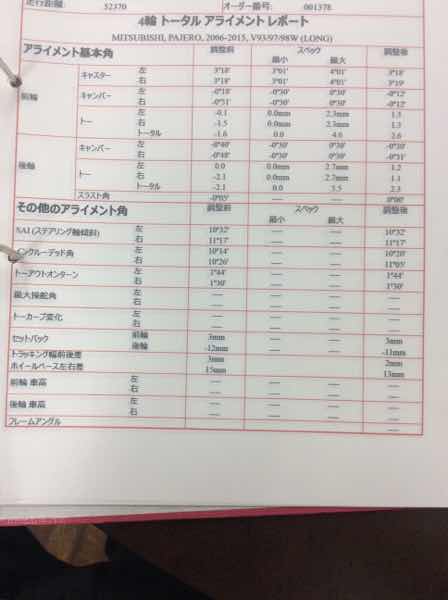 走行距離: 52370 オーダー番号: 001378
4輪 トータル アライメント レポート
MITSUBISHI, PAJERO, 2006-2015, V93/97/98W (LONG)
アライメント基本角 調整前 スペック 調整後
最小 最大
前輪
キャスター 左 3°18' 3°01' 4°01' 3°18'
右 3°18' 3°01' 4°01' 3°19'
キャンバー 左 -0°18' -0°30' 0°30' -0°12'
右 -0°31' -0°30' 0°30' -0°12'
トー 左 -0.1 0.0mm 2.3mm 1.3
右 -1.5 0.0mm 2.3mm 1.3
トータル -1.6 0.0 4.6 2.6
後輪
キャンバー 左 -0°40' -0°30' 0°30' -0°30'
右 -0°48' -0°30' 0°30' -0°31'
トー 左 0.0 0.0mm 2.7mm 1.2
右 -2.1 0.0mm 2.7mm 1.1
トータル -2.1 0.0 5.5 2.3
スラスト角 -0°05' ---- ---- 0°00'
その他のアライメント角 調整前 スペック 調整後
最小 最大
SAI (ステアリング軸傾斜) 左 10°32' ---- ---- 10°32'
右 11°17' ---- ---- 11°17'
インクルーデッド角 左 10°14' ---- ---- 10°20'
右 10°26' ---- ---- 11°05'
トーアウトオンターン 左 1°44' ---- ---- 1°44'
右 1°30' ---- ---- 1°30'
最大操舵角 左 ---- ---- ---- ----
右 ---- ---- ---- ----
トーカーブ変化 左 ---- ---- ---- ----
右 ---- ---- ---- ----
セットバック 前輪 3mm ---- ---- 3mm
後輪 -12mm ---- ---- -11mm
トラッキング幅前後差 3mm ---- ---- 2mm
ホイールベース左右差 15mm ---- ---- 13mm
前輪 車高 左 ---- ---- ---- ----
右 ---- ---- ---- ----
後輪 車高 左 ---- ---- ---- ----
右 ---- ---- ---- ----
フレームアングル ---- ---- ---- ----